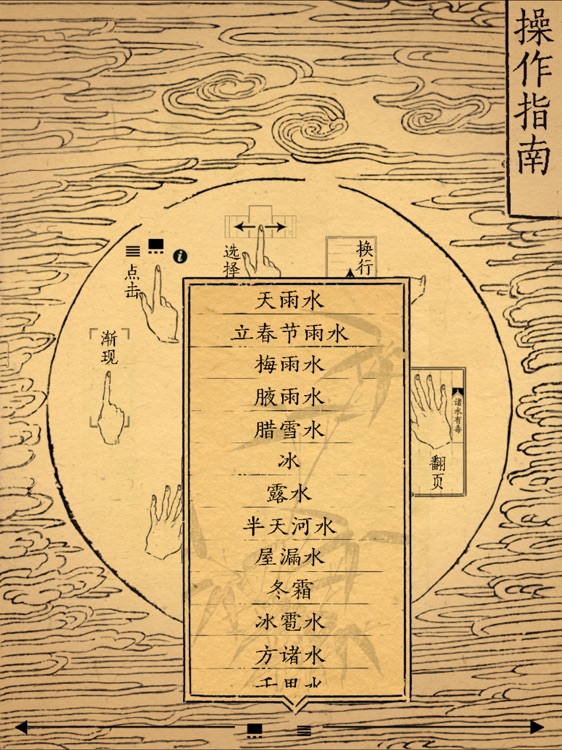 操作指南
选择
换行
点击
渐现
诸水有毒
翻页
天雨水
立春节雨水
梅雨水
腋雨水
腊雪水
冰
露水
半天河水
屋漏水
冬霜
冰雹水
方诸水
千里水